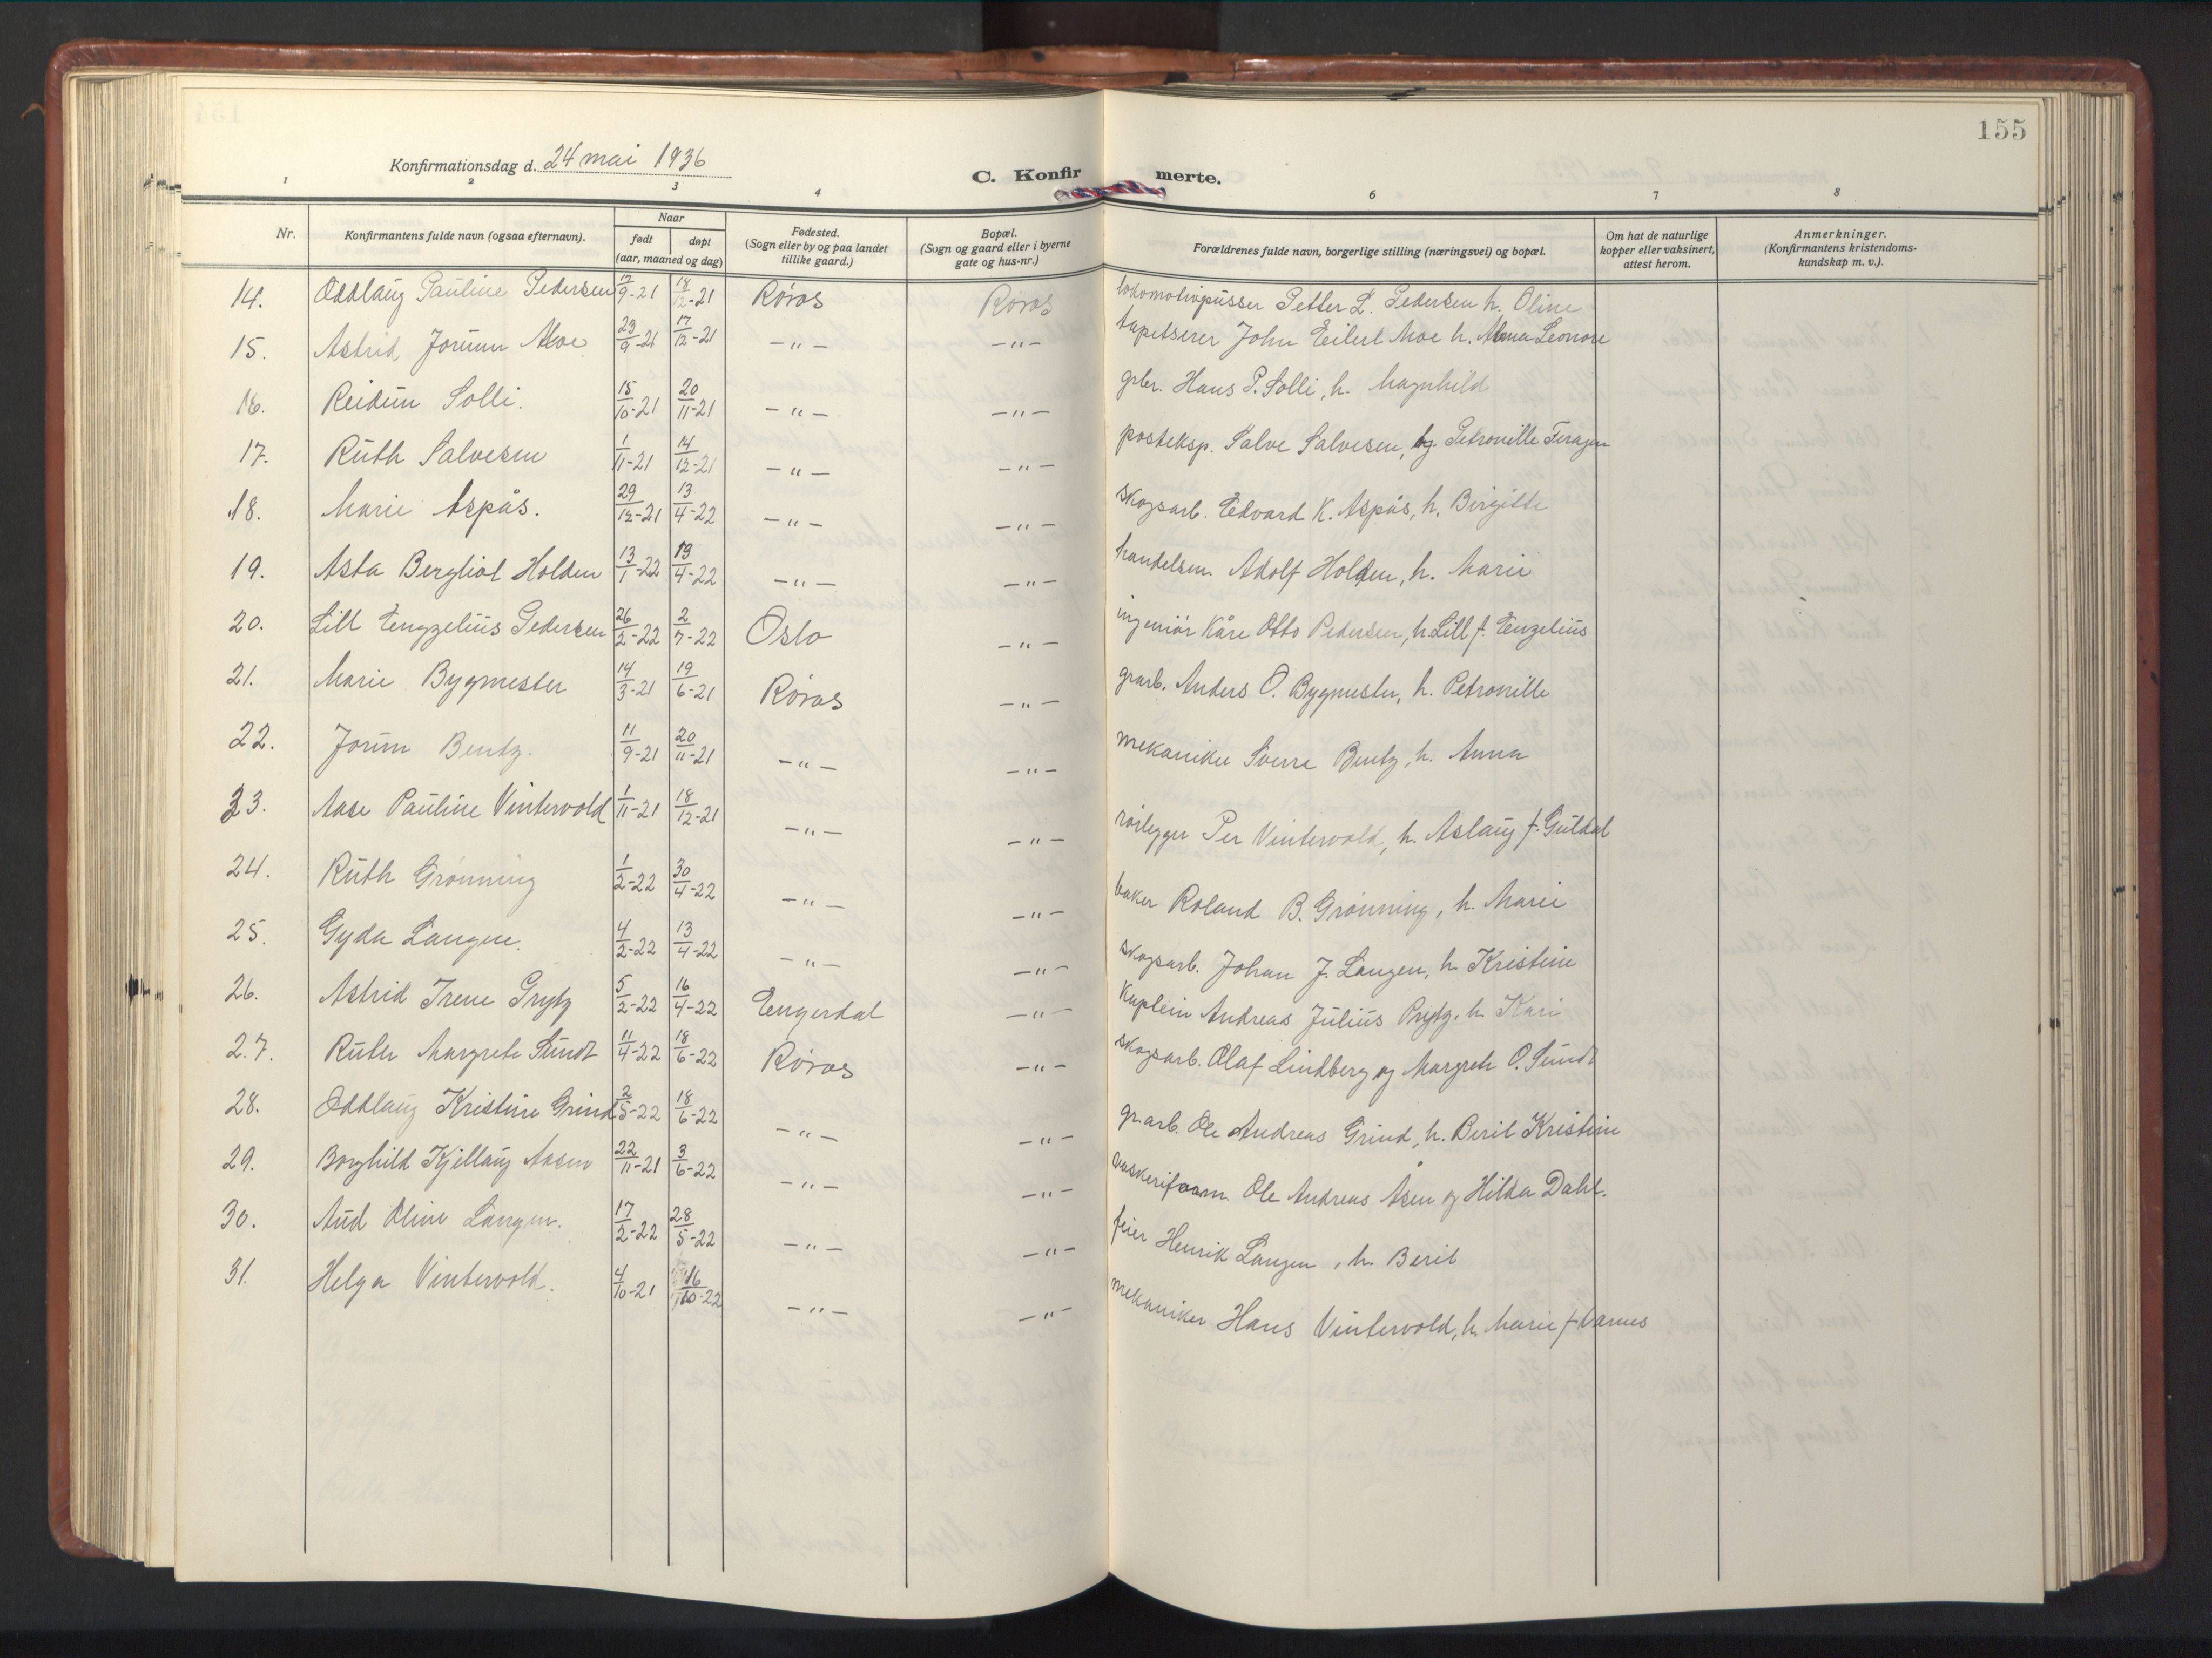 155
Konfirmationsdag d. 24 mai 1936
C. Konfirmerte.
1 2 3 4 6 7 8
Nr. Konfirmantens fulde navn (ogsaa efternavn). Naar født døpt (aar, maaned og dag) Fødested. (Sogn eller by og paa landet tillike gaard.) Bopæl. (Sogn og gaard eller i byerne gate og hus-nr.) Forældrenes fulde navn, borgerlige stilling (næringsvei) og bopæl. Om hat de naturlige kopper eller vaksinert, attest herom. Anmerkninger. (Konfirmantens kristendoms-kundskap m. v.).
14. Oddlaug Pauline Pedersen 12/9-21 18/12-21 Røros Røros lokomotivpusser Petter L. Pedersen h. Oline
15. Astrid Jorunn Moe 23/9-21 17/12-21 -"- -"- tapetserer John Eilert Moe h. Alma Leonore
16. Reidun Solli. 15/10-21 20/11-21 -"- -"- grbr. Hans P. Solli, h. Magnhild
17. Ruth Salvesen 1/11-21 14/12-21 -"- -"- posteksp. Salve Salvesen, og Petronille Feragen
18. Marie Aspås. 29/12-21 13/4-22 -"- -"- skogsarb. Edvard K. Aspås, h. Birgitte
19. Asta Bergliot Holden 13/1-22 19/4-22 -"- -"- handelsm. Adolf Holden, h. Marie
20. Lill Engzelius Pedersen 26/2-22 2/7-22 Oslo -"- ingeniør Kåre Otto Pedersen, h. Lill f. Engelius
21. Marie Bygmester 14/3-21 19/6-21 Røros -"- grarb. Anders O. Bygmester, h. Petronille
22. Jorun Bentz. 11/9-21 20/11-21 -"- -"- mekaniker Sverre Bentz, h. Anna
23. Aase Pauline Vintervold 1/11-21 18/12-21 -"- -"- rørlegger Per Vintervold, h. Aslaug f. Guldal
24. Ruth Grønning 1/2-22 30/4-22 -"- -"- baker Roland B. Grønning, h. Marie
25. Gyda Langen. 4/2-22 13/4-22 -"- -"- skogsarb. Johan J. Langen, h. Kristine
26. Astrid Irene Prytz 5/2-22 16/4-22 Engerdal -"- kaptein Andreas Julius Prytz. h. Kari
27. Ruter Margrete Sundt 11/4-22 18/6-22 Røros -"- skogsarb. Olaf Lindberg og Margrete O. Sundt
28. Oddlaug Kristine Grind 2/5-22 18/6-22 -"- -"- grarb. Ole Andreas Grind, h. Beril Kristine
29. Borghild Kjellaug Aasen 22/11-21 3/6-22 -"- -"- Ole Andreas Åsen og Hilda Dahl.
30. Aud Oline Langen. 17/2-22 28/5-22 -"- -"- feier Henrik Langen, h. Beril
31. Helga Vintervold. 4/10-21 16/10-22 -"- -"- mekaniker Hans Vintervold, h. Marie f.